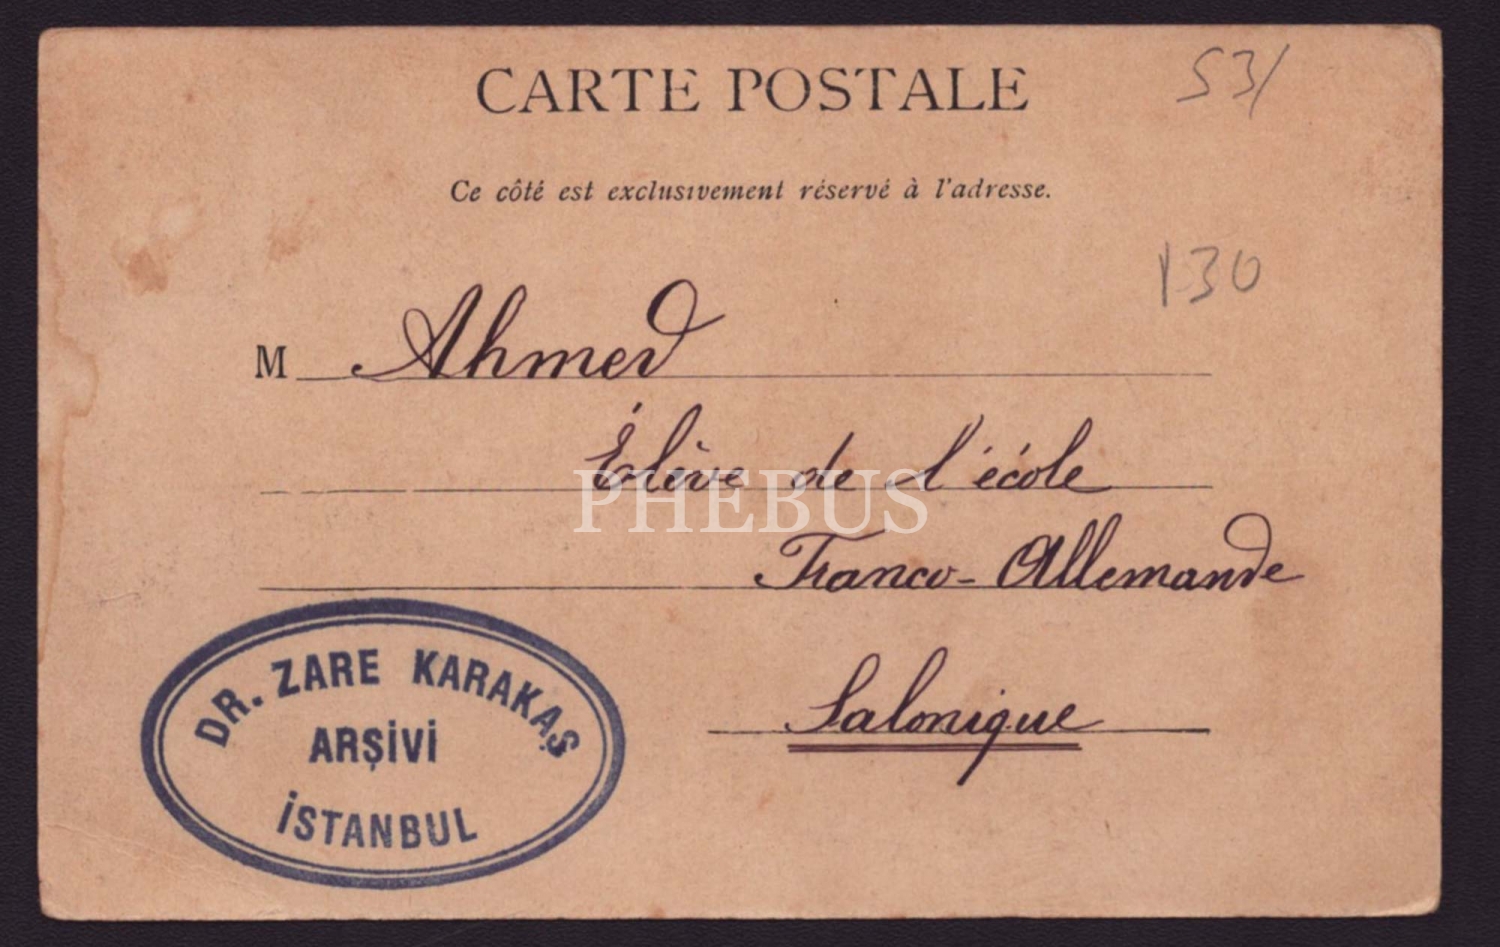 CARTE POSTALE
53/
Ce côté est exclusivement réservé à l'adresse.
130
M Ahmed
Élève de l'école
PHEBUS
Franco-Allemande
Salonique
DR. ZARE KARAKAŞ
ARŞİVİ
İSTANBUL